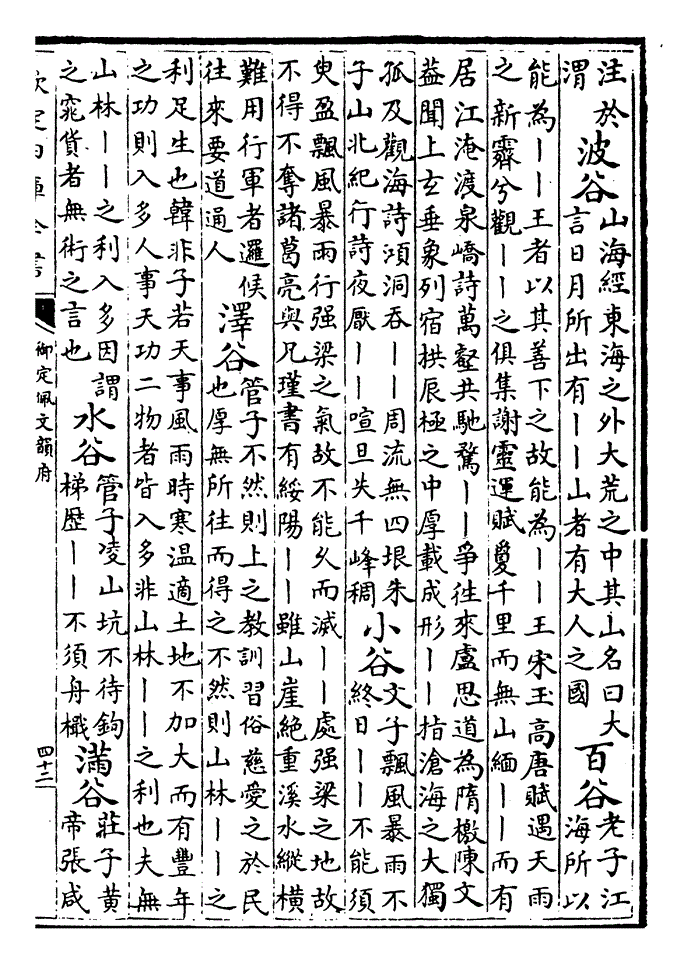 注於
渭
波谷
山海經東海之外大荒之中其山名曰大
言日月所出有丨丨山者有大人之國
百谷
老子江
海所以
能為丨丨王者以其善下之故能為丨丨王宋玉高唐賦遇天雨
之新霽兮觀丨丨之俱集謝靈運賦夐千里而無山緬丨丨而有
居江淹渡泉嶠詩萬壑共馳騖丨丨爭往來盧思道為隋檄陳文
益聞上玄垂象列宿拱辰極之中厚載成形丨丨指滄海之大獨
孤及觀海詩澒洞吞丨丨周流無四垠朱
子山北紀行詩夜厭丨丨喧旦失千峰稠
小谷
文子飄風暴雨不
終日丨丨不能須
臾盈飄風暴雨行强梁之氣故不能久而滅丨丨處强梁之地故
不得不奪諸葛亮與兄瑾書有綏陽丨丨雖山崖絶重溪水縱橫
難用行軍者邏候
往來要道通人
澤谷
管子不然則上之教訓習俗慈愛之於民
也厚無所往而得之不然則山林丨丨之
利足生也韓非子若天事風雨時寒温適土地不加大而有豐年
之功則入多人事天功二物者皆入多非山林丨丨之利也夫無
山林丨丨之利入多因謂
之窕貨者無術之言也
水谷
管子凌山坑不待鉤
梯歴丨丨不須舟檝
滿谷
莊子黄
帝張咸
欽定四庫全書
御定佩文韻府
四十二